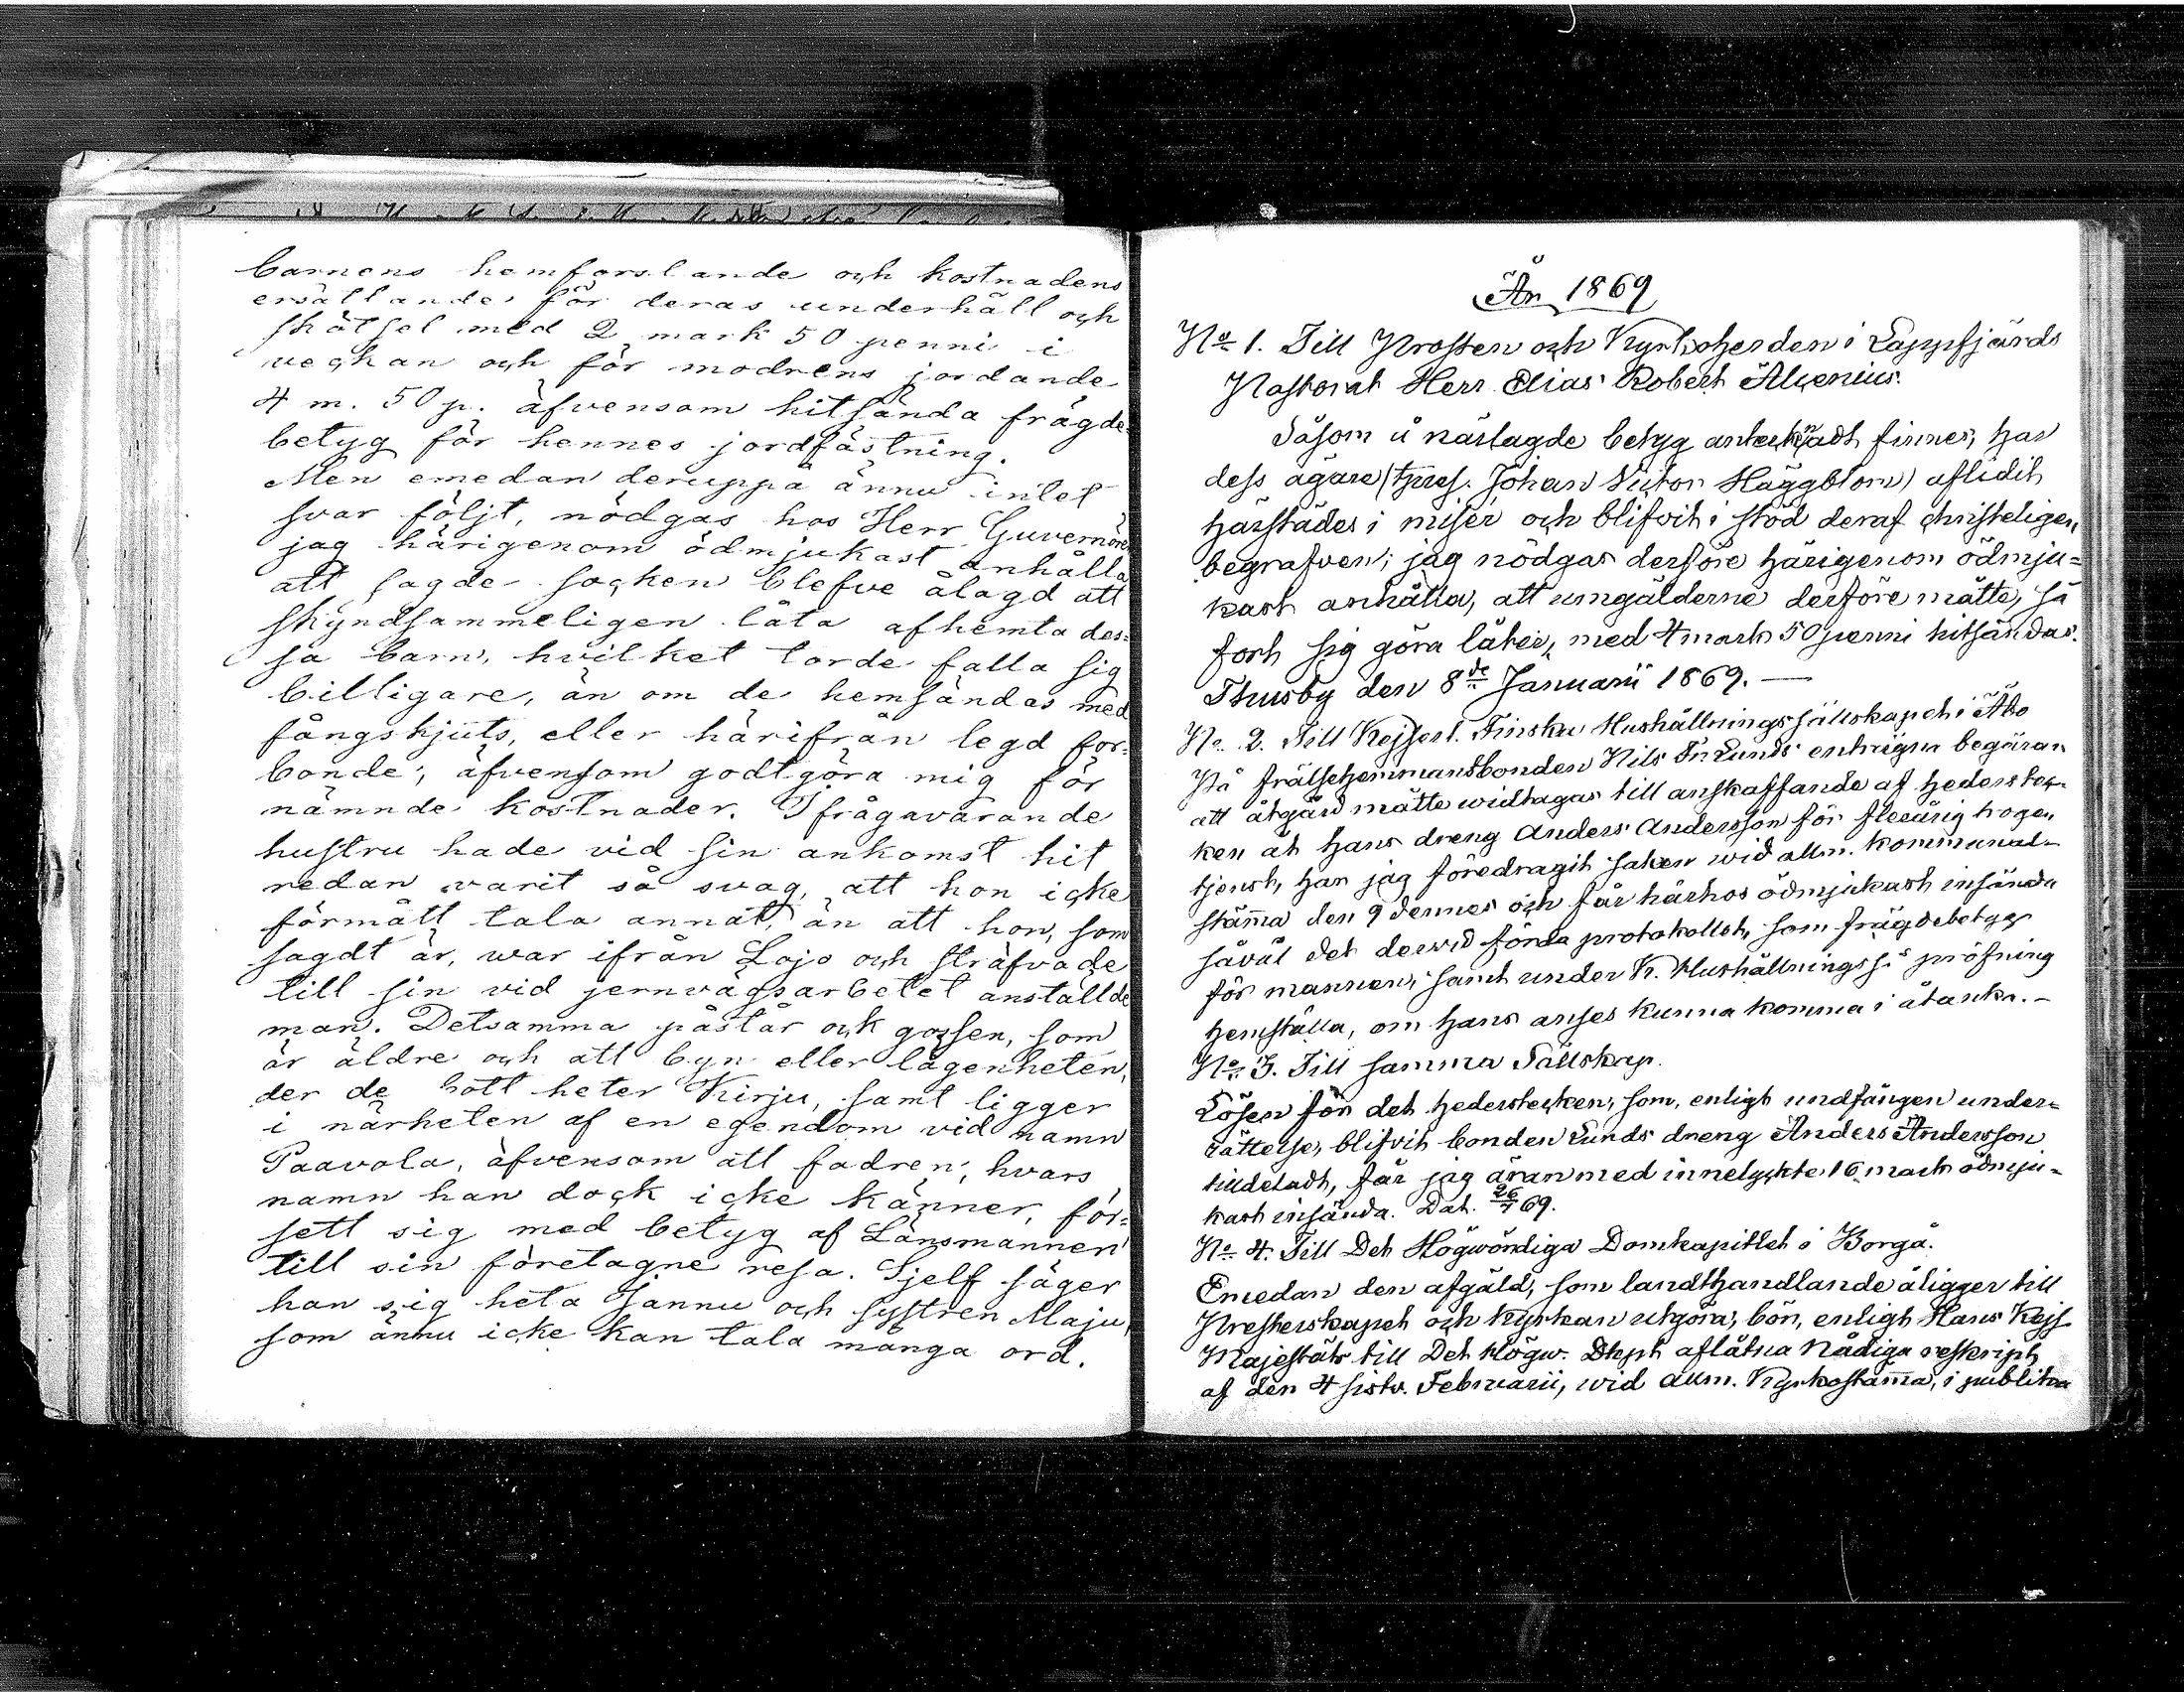 barnens hemforslande och kostnadens
ersättande för deras underhåll och
skötsel med 2 mark 50 penni i
veckan och för modrens jordande
4 m. 50 p. äfvensom hitsända frägde-
betyg för hennes jordfästning.
Men emedan deruppå ännu intet
svar följt, nödgas hos Herr Guvernören
jag härigenom ödmjukast anhålla
att sagde socken blefve ålagd att
skyndsammeligen låta afhemta des-
sa barn, hvilket torde falla sig
billigare, än om de hemsändas med
fångskjuts, eller härifrån legd for-
bonde; äfvensom godtgöra mig för
nämnde kostnader. Ifrågavarande
hustru hade vid sin ankomst hit
redan varit så svag, att hon icke
förmått tala annat, än att hon, som
sagdt är, war ifrån Lojo och sträfvade
till sin vid jernvägsarbetet anställde
man. Detsamma påstår ock gossen, som
är äldre och att byn eller lägenheten,
der de bott heter Kirju, samt ligger
i närheten af en egendom vid namn
Paavola, äfvensom att fadren, hvars
namn han dock icke känner, för-
sett sig med betyg af Länsmannen
till sin företagne resa. Sjelf säger
han sig heta Jannu och systren Maju,
som ännu icke kan tala många ord.
År 1869
No 1. Till Prosten och Kyrkoherden i Lappfjärds
Pastorat Herr Elias Robert Alcenius.
Såsom å närlagde betyg antecknadt finnes, har
dess ägare (tjares. Johan Victor Häggblom) aflidit
härstädes i misèr och blifvit i stöd deraf christeligen
begrafven; jag nödgas derföre härigenom ödmju-
kast anhålla, att umgälderne derföre måtte, så
fort sig göra låter, med 4 mark 50 penni hitsändas.
Thusby den 8de Januarii 1869. —
No 2. Till Kejserl. Finska Hushållningssällskapet i Åbo
På frälsehemmansbonden Nils Lunds enträgna begäran
att åtgärd måtte widtagas till anskaffande af hederstec-
ken åt hans dreng Anders Andersson för flerårig trogen
tjenst, har jag föredragit saken wid allm. kommunal-
stämma den 9 dennes och får härhos ödmjukast insända
såväl det derwid förda protokollet, som frägdebetyg
för mannen, samt under K. Hushållningss:s pröfning
hemställa, om hans anses kunna komma i åtanka. -
No 3. Till samma Sällskap.
Lösen för det hederstecken, som, enligt undfången under-
rättelse, blifvit bonden Lunds dreng Anders Andersson
tilldeladt, får jag äran med innelyckte 16 mark ödmju-
kast insända. Dat. 26 69.
No 4. Till Det Högwördiga Domkapitlet i Borgå.
Emedan den afgäld, som landthandlande åligger till
Presterskapet och kyrkan utgöra, bör, enligt Hans Kejs.
Majestäts till Det Högw. Dkpt aflåtna Nådiga reskript
af den 4 sistv. Februarii, wid allm. Kyrkostämma, i publika